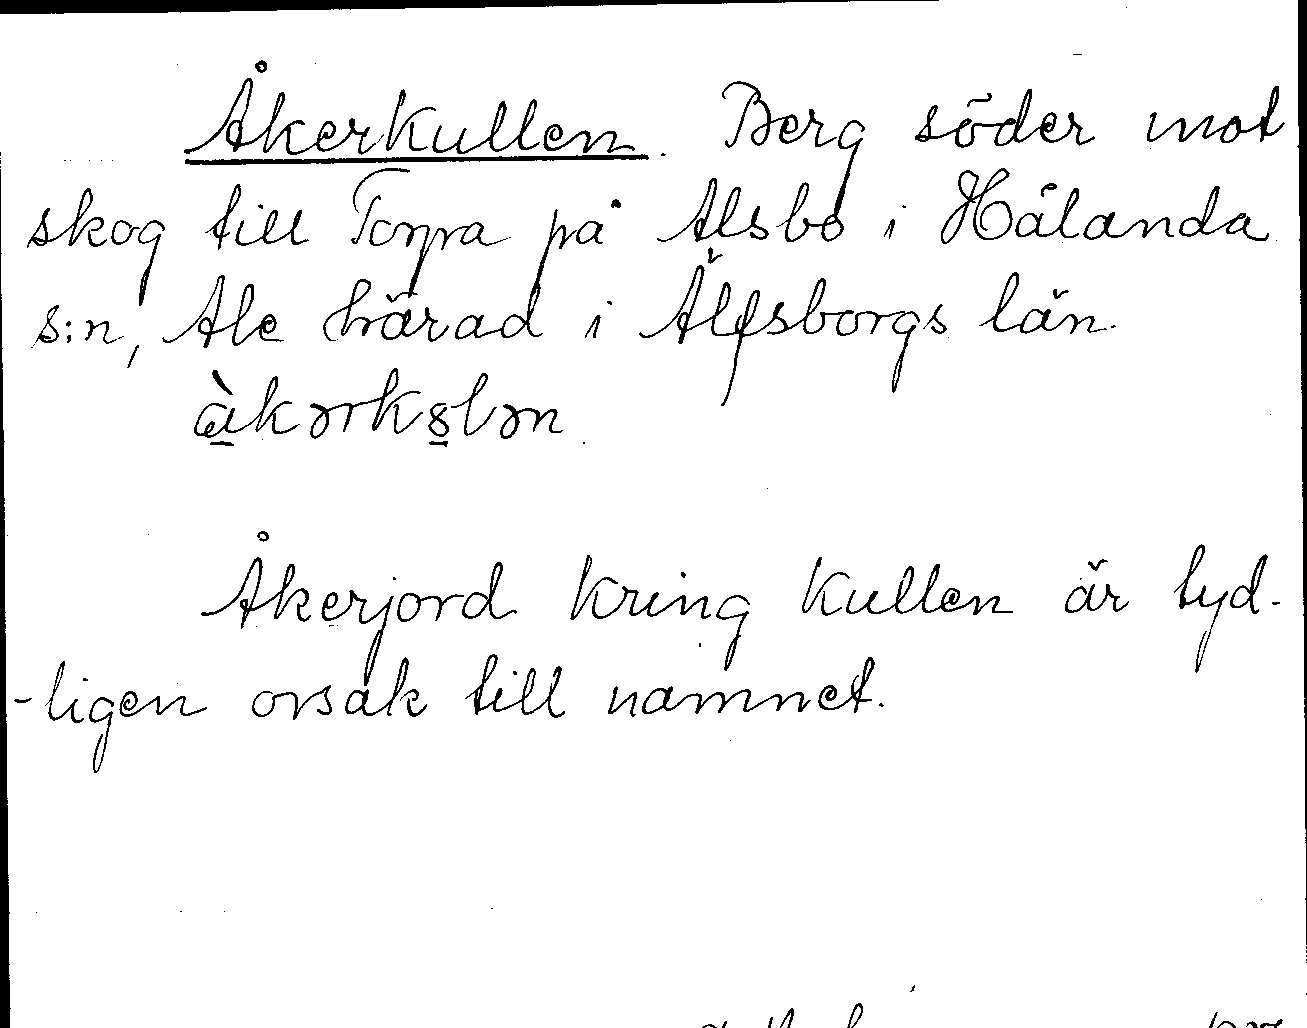 Åkerkullen. Berg söder mot
skog till Torpa på Alsbo i Hålanda
s:n, Ale härad i Älfsborgs län.
àkərkɞlən
Åkerjord kring kullen är tyd-
-ligen orsak till namnet.